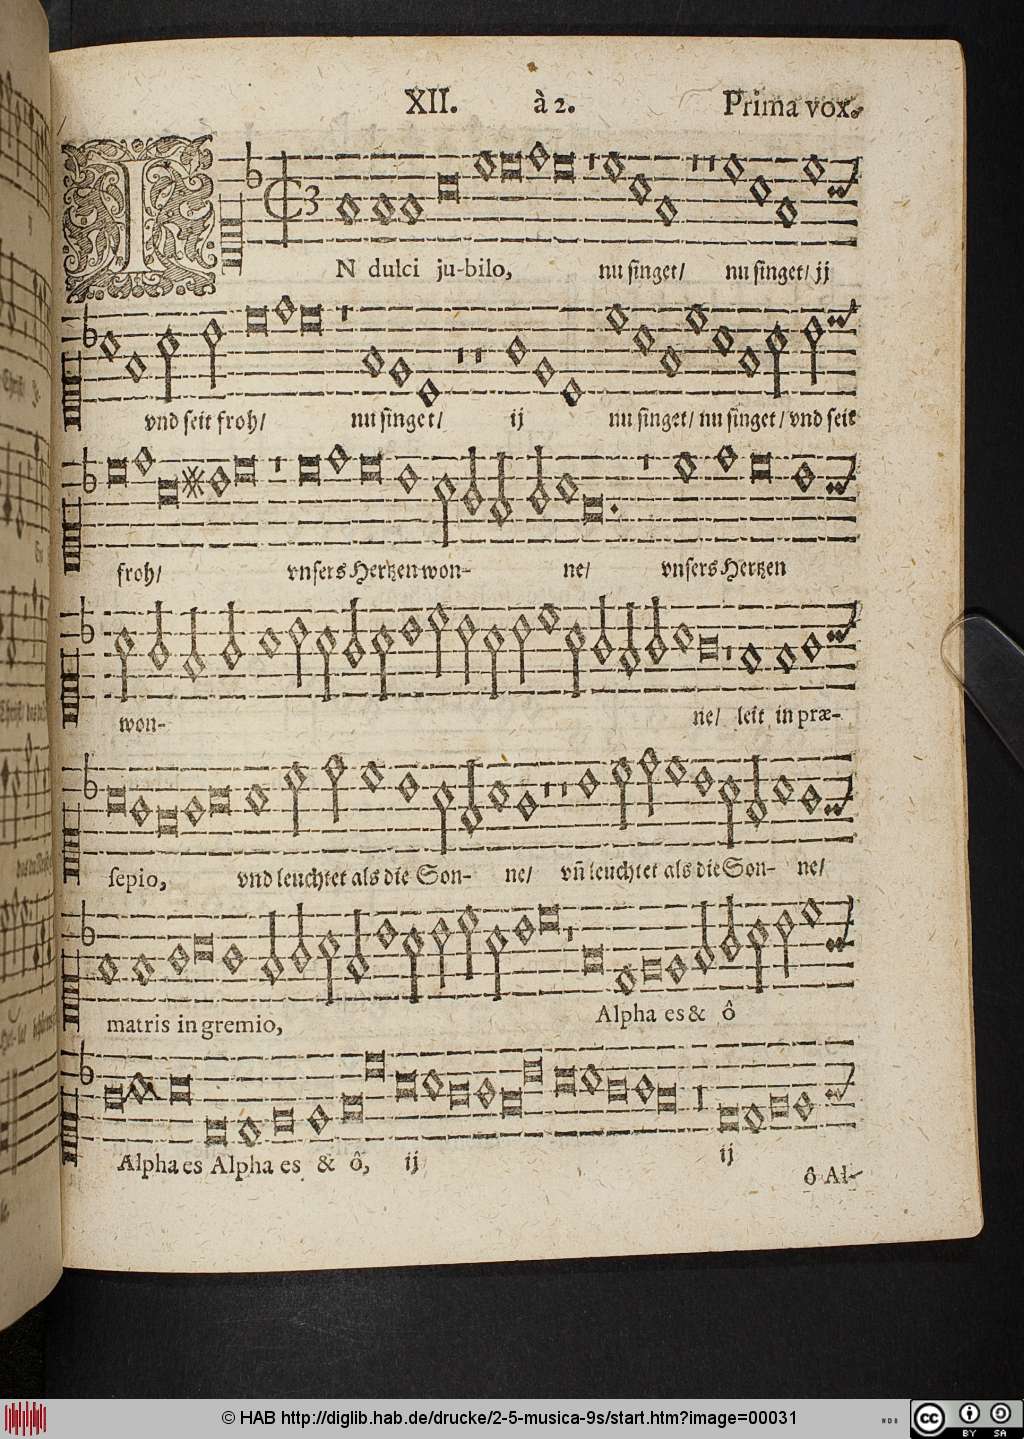 XII. à 2. Prima vox.
IN dulci ju-bilo, nu singet/ nu singet/ ij
vnd seit froh/ nu singet/ ij nu singet/ nu singet/ vnd seit
froh/ vnsers Hertzen won- ne/ vnsers Hertzen
won- ne/ leit in præ-
sepio, vnd leuchtet als die Son- ne/ vñ leuchtet als die Son- ne/
matris in gremio, Alpha es & ô
Alpha es Alpha es & ô, ij ij
ô Al-
© HAB http://diglib.hab.de/drucke/2-5-musica-9s/start.htm?image=00031
cc BY SA